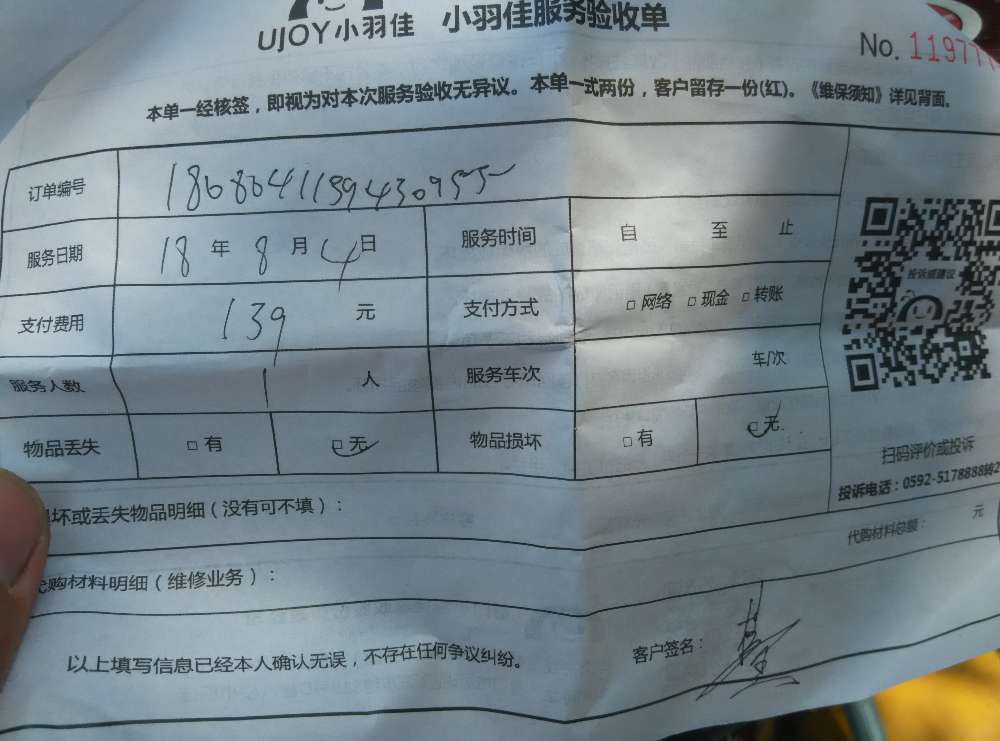 UJOY小羽佳 小羽佳服务验收单
No. 11977
本单一经核签，即视为对本次服务验收无异议。本单一式两份，客户留存一份(红)。《维保须知》详见背面。
订单编号 180804115943095５
服务日期 18 年 8 月 4 日 服务时间 自 至 止
支付费用 139 元 支付方式 □网络 □现金 □转账
服务人数 1 人 服务车次 车/次
物品丢失 □有 □无 物品损坏 □有 □无
投诉或建议
扫码评价或投诉
投诉电话：0592-5178888转2
坏或丢失物品明细（没有可不填）：
代购材料明细（维修业务）： 代购材料总额： 元
以上填写信息已经本人确认无误，不存在任何争议纠纷。 客户签名：